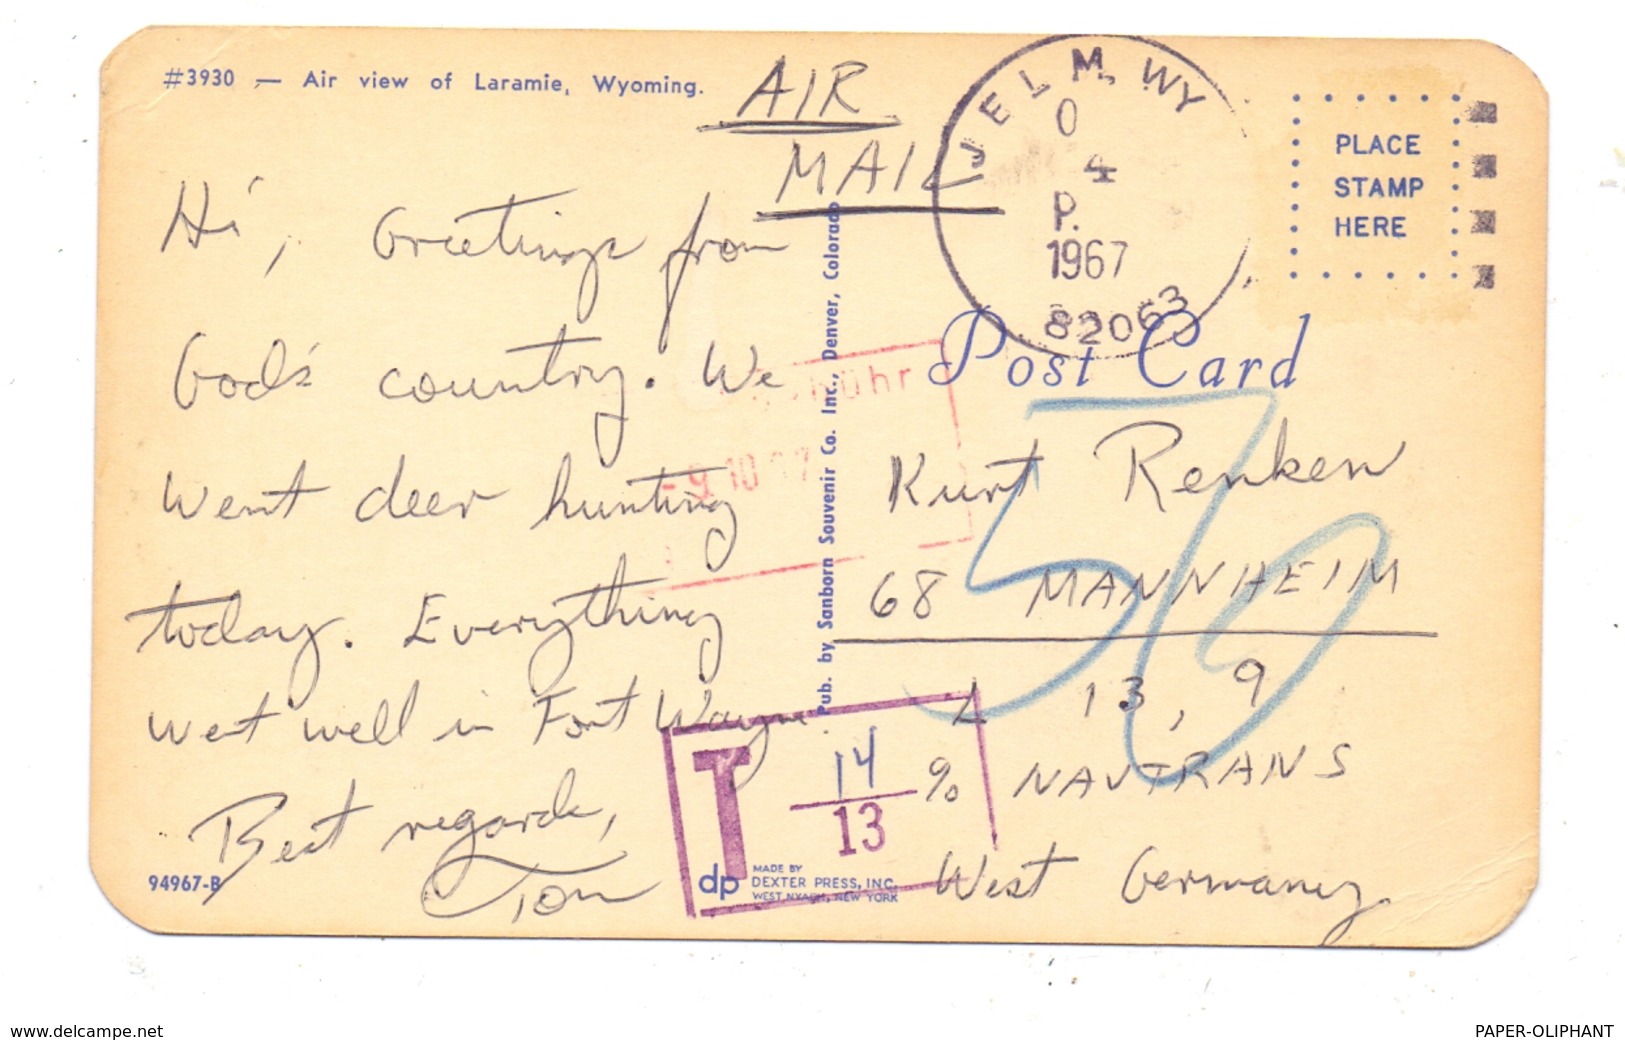 #3930 — Air view of Laramie, Wyoming.
AIR
MAIL
JELM, WY
O
4
P.
1967
82063
PLACE
STAMP
HERE
Hi, Greetings from
God's country. We
went deer hunting
today. Everything
went well in Fort Wayne
Best regards,
Tom
94967-B
Pub. by Sanborn Souvenir Co. Inc., Denver, Colorado
-9.10.67
Post Card
Kurt Renken
68 MANNHEIM
L 13, 9
% NAVTRANS
West Germany
50
T 14
13
dp MADE BY
DEXTER PRESS, INC.
WEST NYACK, NEW YORK
www.delcampe.net
PAPER-OLIPHANT